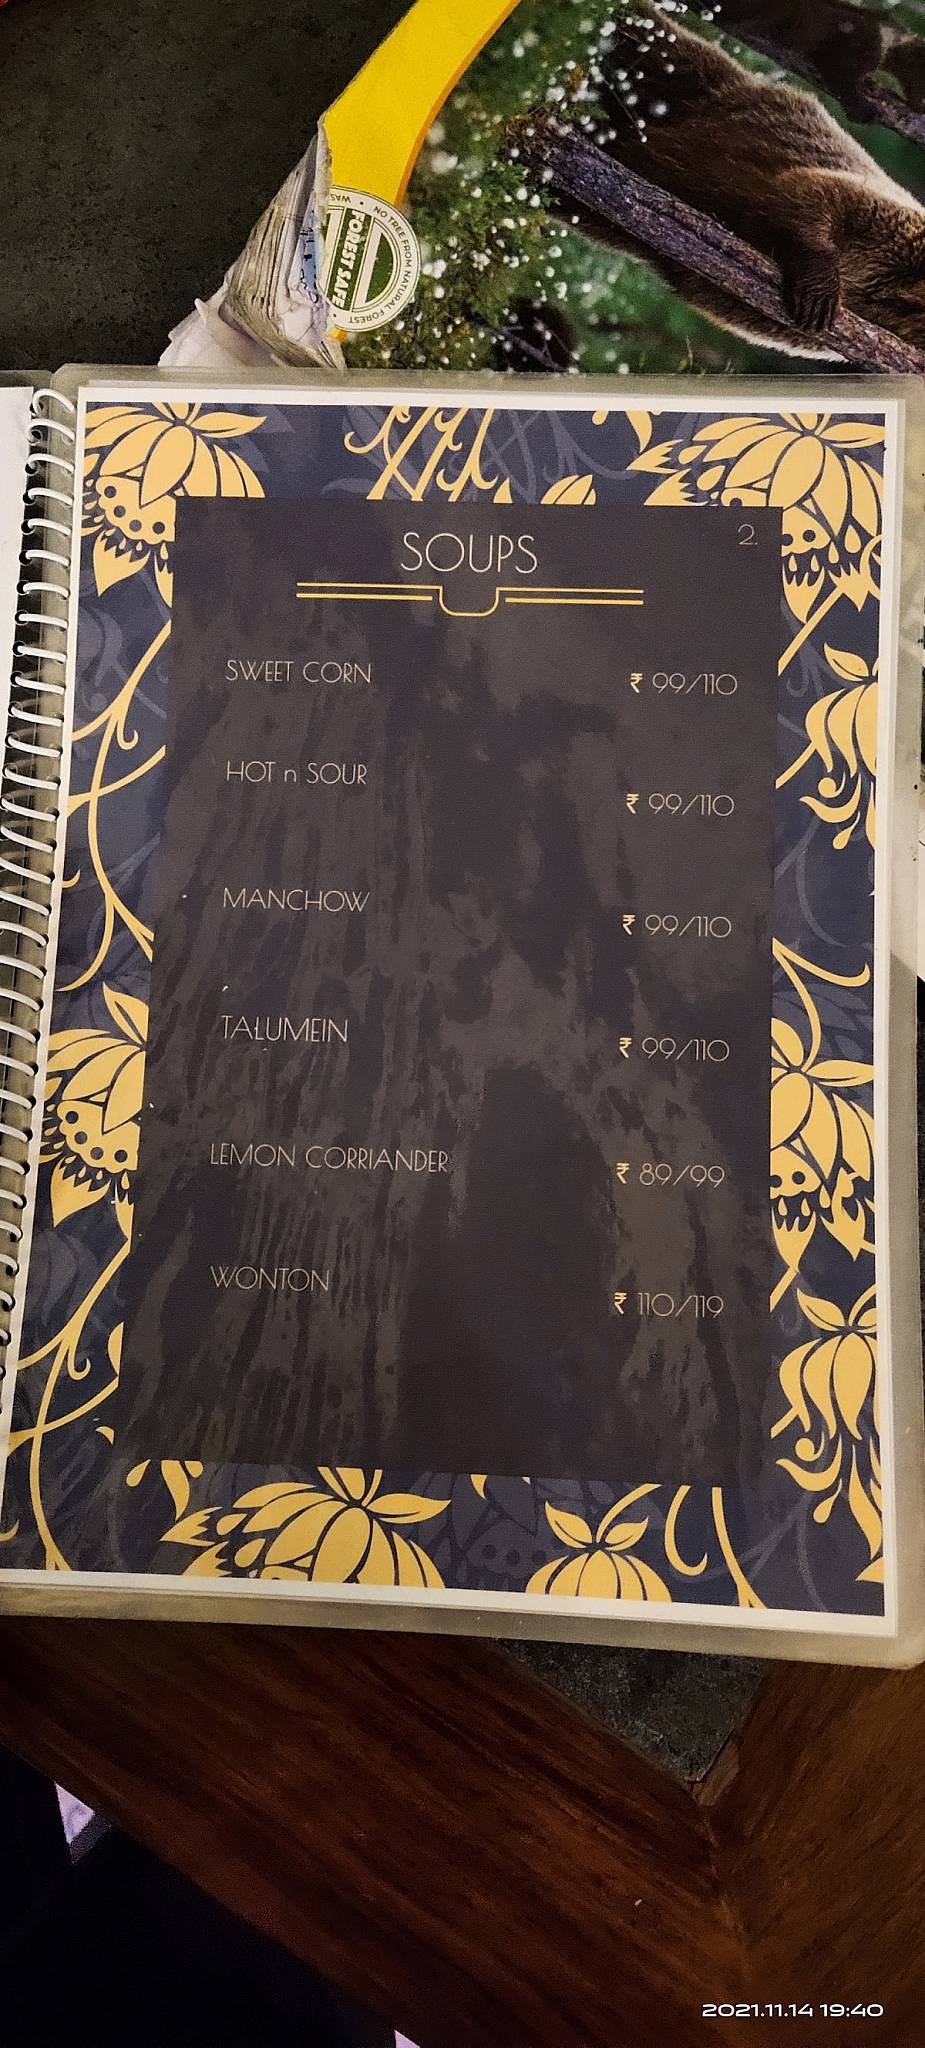 NO TREE FROM NATURAL FOREST
FOREST SAFE
SOUPS
2.
SWEET CORN ₹ 99/110
HOT n SOUR ₹ 99/110
MANCHOW ₹ 99/110
TALUMEIN ₹ 99/110
LEMON CORRIANDER ₹ 89/99
WONTON ₹ 110/119
2021.11.14 19:40